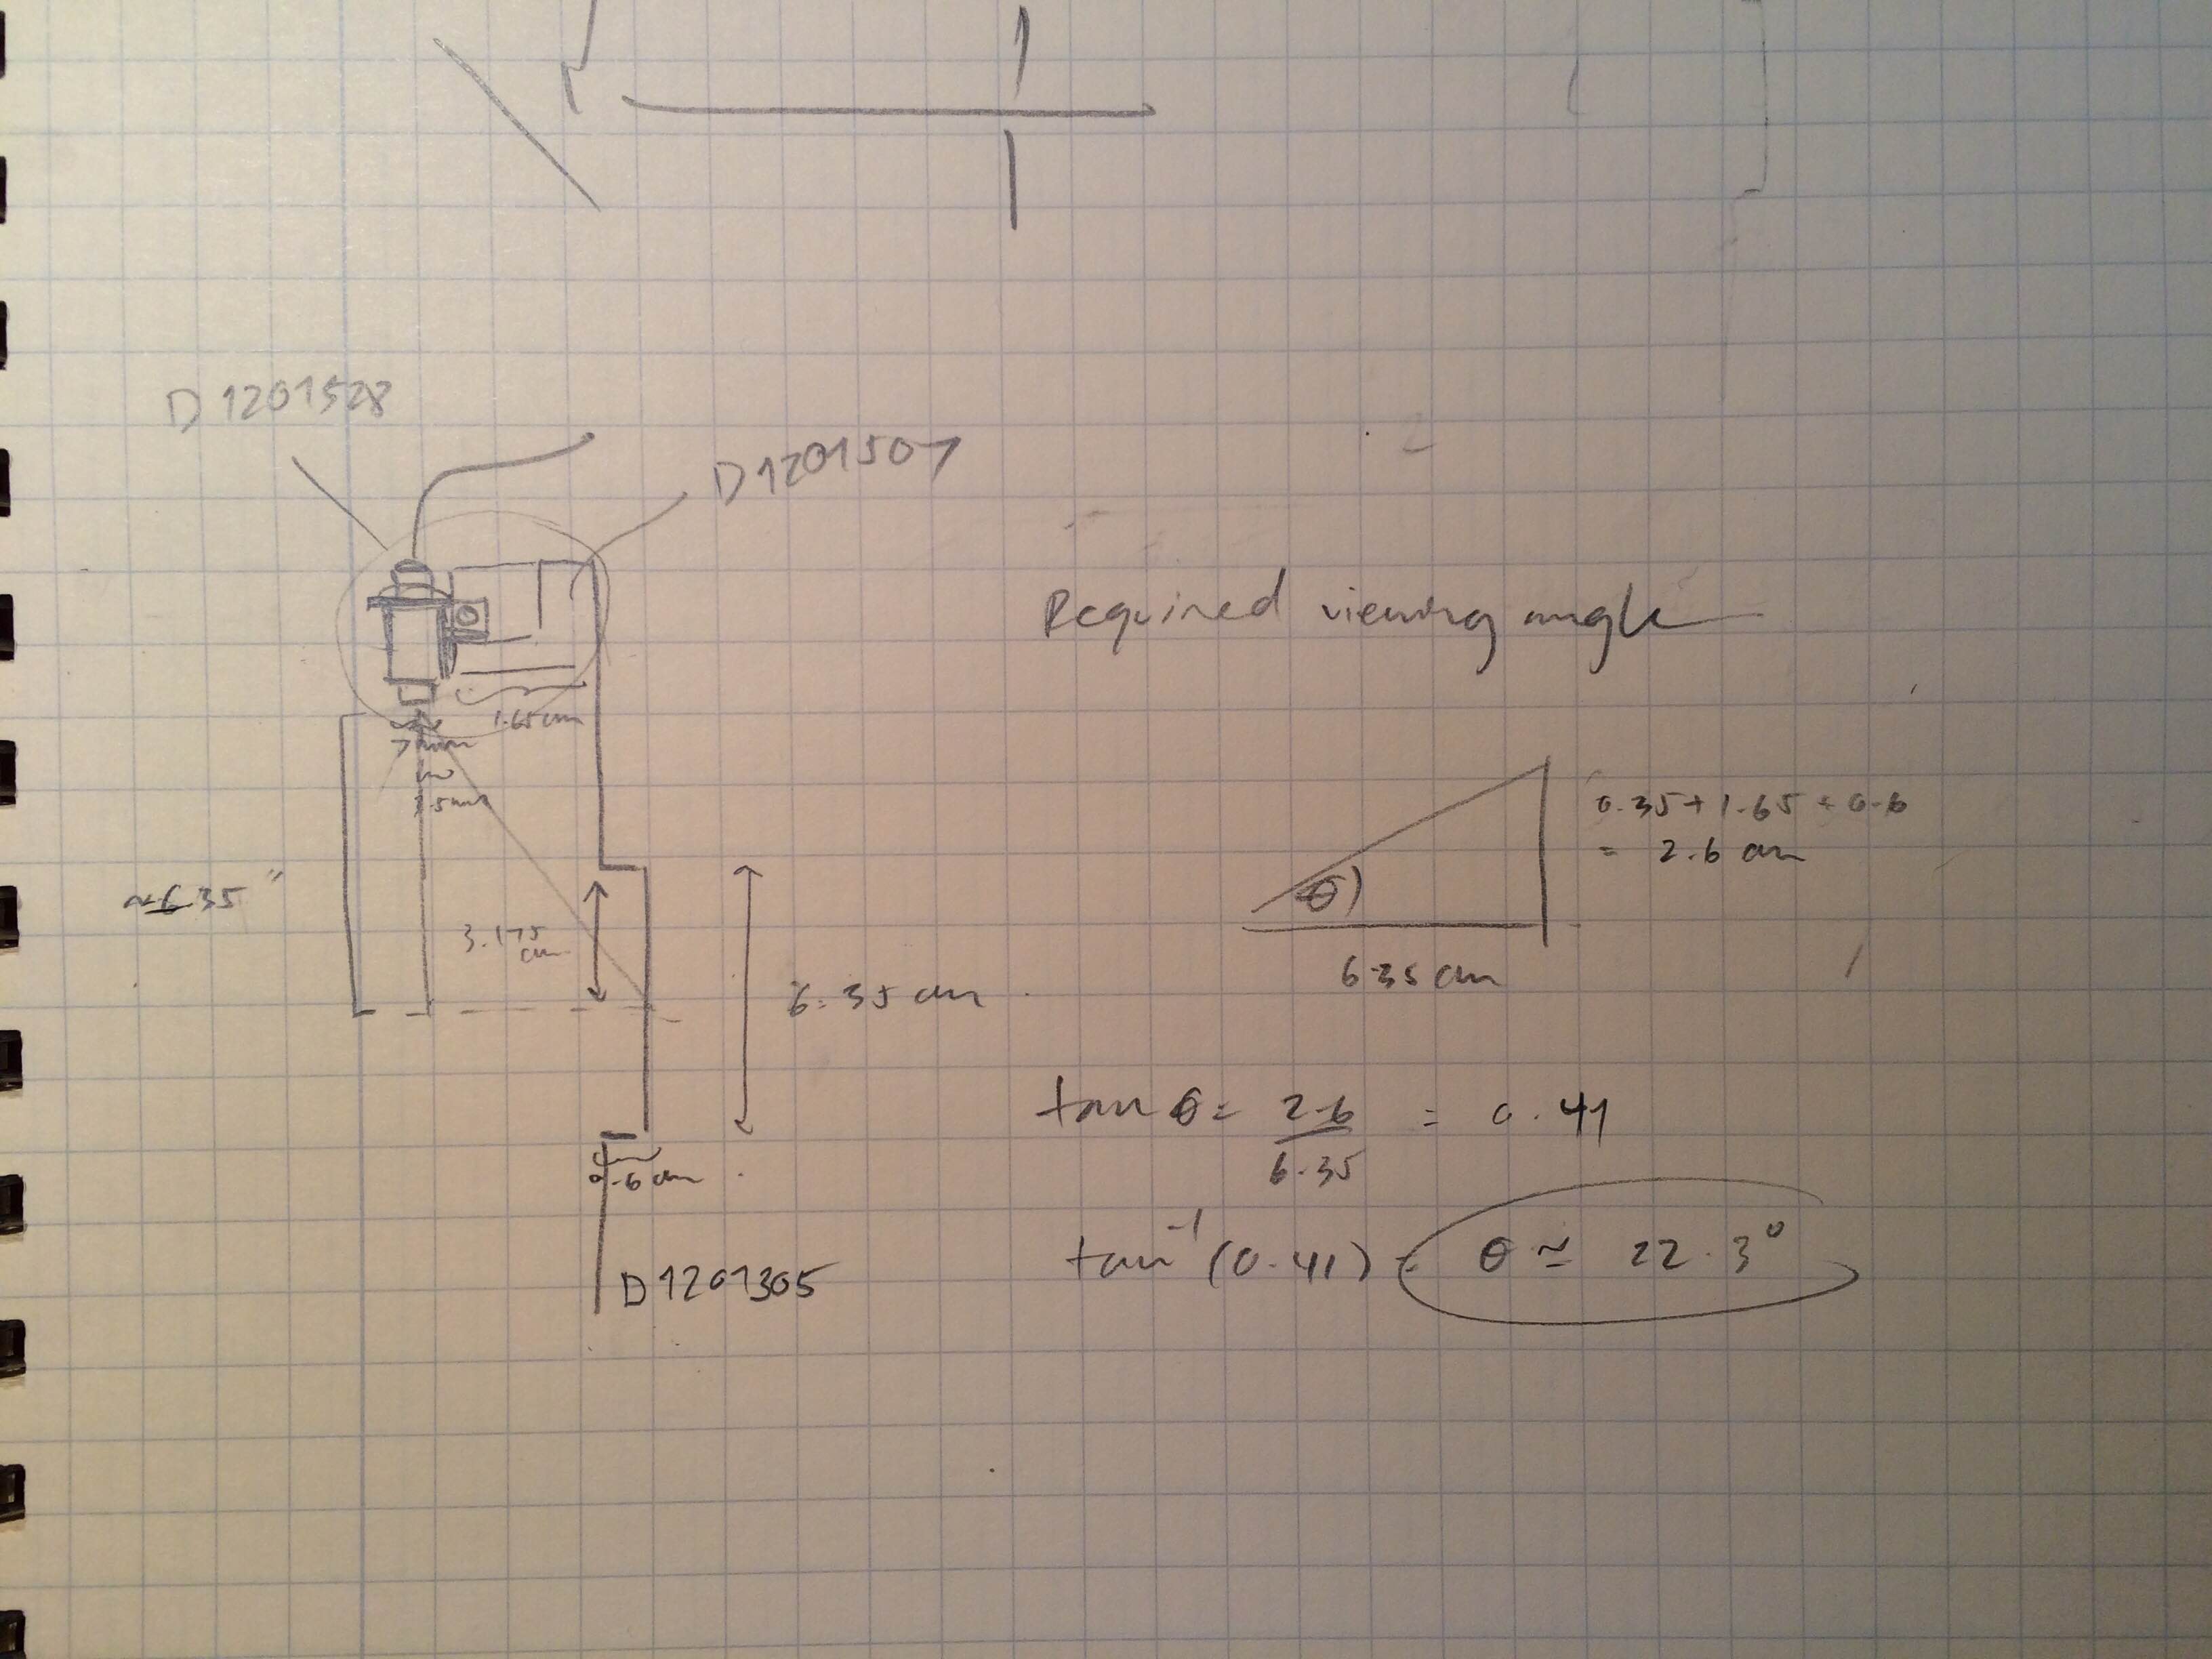 D1201528
D1201507
Required viewing angle
1.65cm
7mm
3.5mm
0.35+1.65+0.6
= 2.6 cm
θ
~6.35"
3.175
cm
6.35 cm
6.35 cm
tan θ = 2.6 = 0.41
6.35
0.6 cm
tan⁻¹(0.41) = θ ≃ 22.3°
D1201305